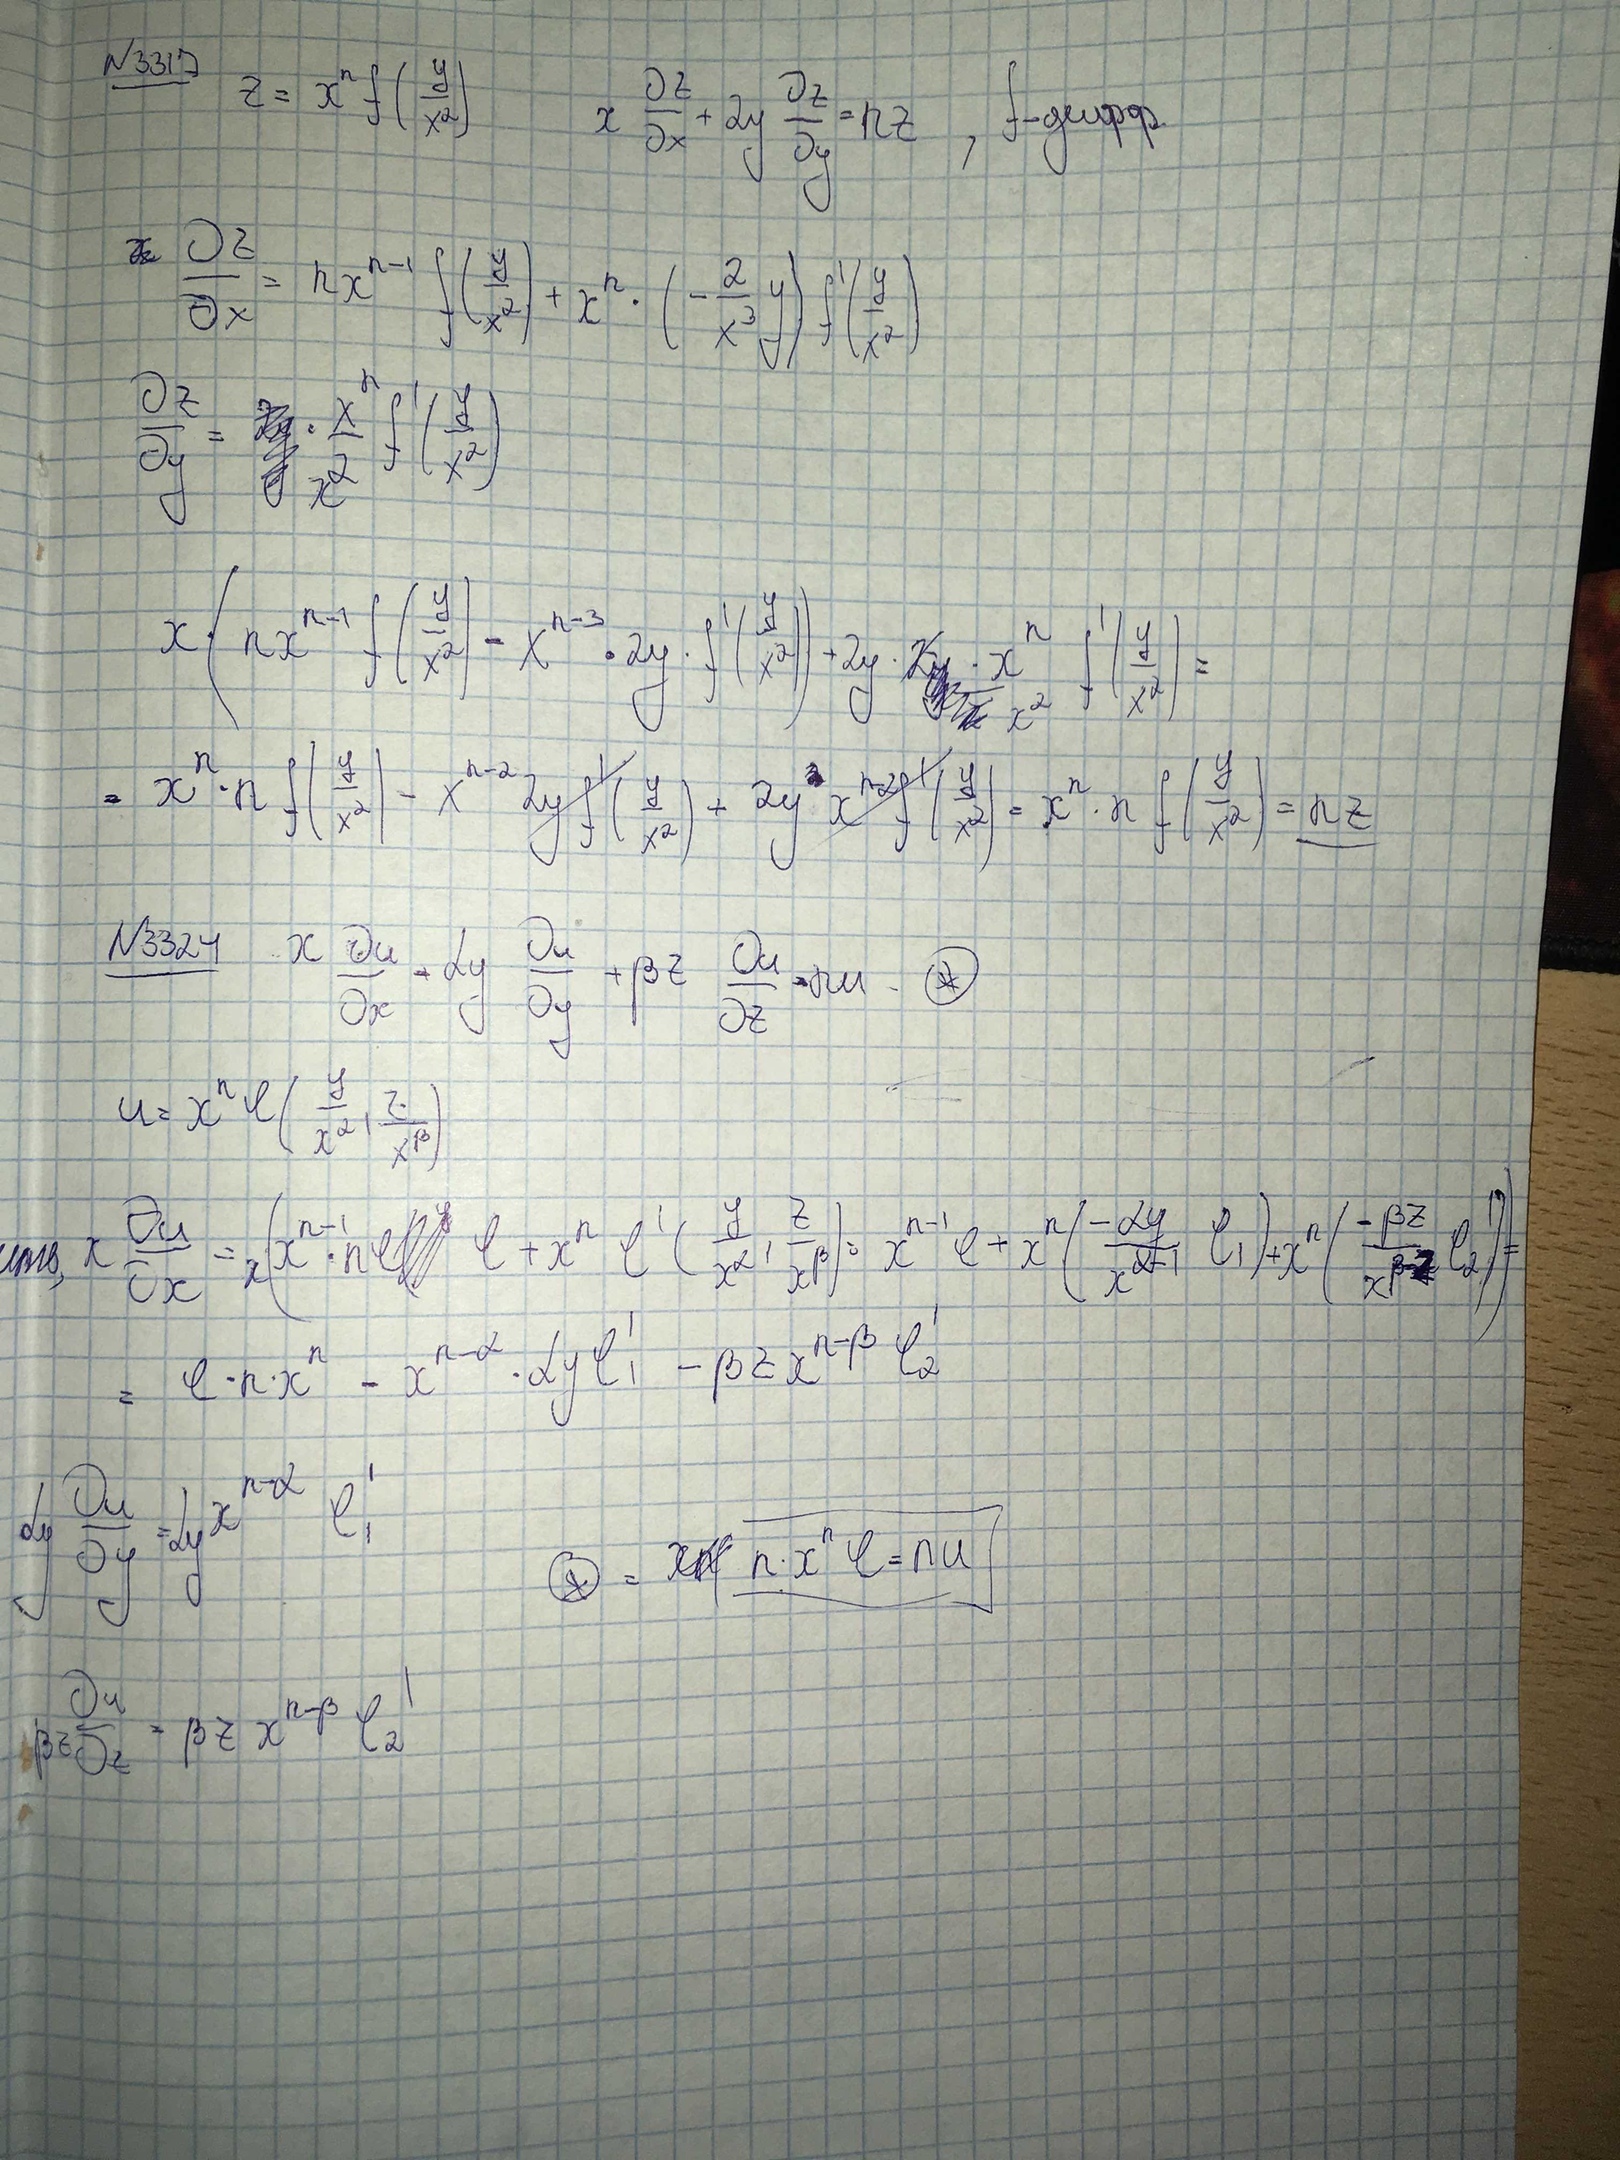 N3317 z = xⁿ f(y/x²) x ∂z/∂x + 2y ∂z/∂y = nz , f-дифф.
∂z/∂x = nxⁿ⁻¹ f(y/x²) + xⁿ · (-2/x³ y) f'(y/x²)
∂z/∂y = · xⁿ/x² f'(y/x²)
x · (nxⁿ⁻¹ f(y/x²) - xⁿ⁻³ · 2y · f'(y/x²)) + 2y · xⁿ/x² f'(y/x²) =
= xⁿ · n f(y/x²) - xⁿ⁻² 2y f'(y/x²) + 2y xⁿ⁻² f'(y/x²) = xⁿ · n f(y/x²) = nz
N3324 x ∂u/∂x + αy ∂u/∂y + βz ∂u/∂z = nu - ⊛
u = xⁿ φ(y/x^α, z/x^β)
x ∂u/∂x = x(xⁿ⁻¹ · n φ + xⁿ φ'(y/x^α, z/x^β) = xⁿ⁻¹ φ + xⁿ(-αy/x^(α+1) φ₁) + xⁿ(-βz/x^β φ₂')) =
= φ · n · xⁿ - x^(n-α) · αy φ₁' - βz x^(n-β) φ₂'
αy ∂u/∂y = αy x^(n-α) φ₁'
⊛ = n · xⁿ φ = nu
βz ∂u/∂z = βz x^(n-β) φ₂'